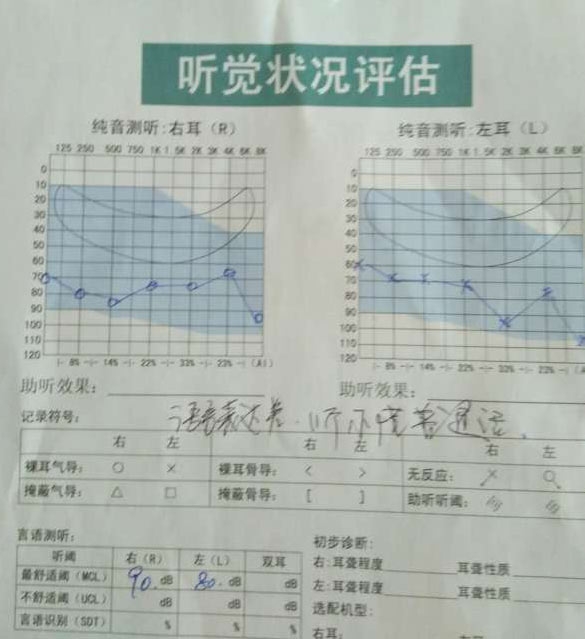 听觉状况评估
纯音测听:右耳（R） 纯音测听:左耳（L）
125 250 500 750 1K 1.5K 2K 3K 4K 6K 8K 125 250 500 750 1K 1.5K 2K 3K 4K 6K 8K
0 0
10 10
20 20
30 30
40 40
50 50
60 60
70 70
80 80
90 90
100 100
110 110
120 120
8% 14% 22% 33% 23% (AI) 8% 14% 22% 33% 23%
助听效果: 助听效果:
语言表达差.听不懂普通话.
记录符号:
右 左 右 左 右 左
裸耳气导: ○ × 裸耳骨导: < > 无反应:
掩蔽气导: △ □ 掩蔽骨导: [ ] 助听听阈:
言语测听: 初步诊断:
听阈 右（R） 左（L） 双耳 右:耳聋程度 耳聋性质
最舒适阈（MCL） 90.dB 80.dB dB 左:耳聋程度 耳聋性质
不舒适阈（UCL） dB dB dB 选配机型:
言语识别（SDT） % % % 右耳: